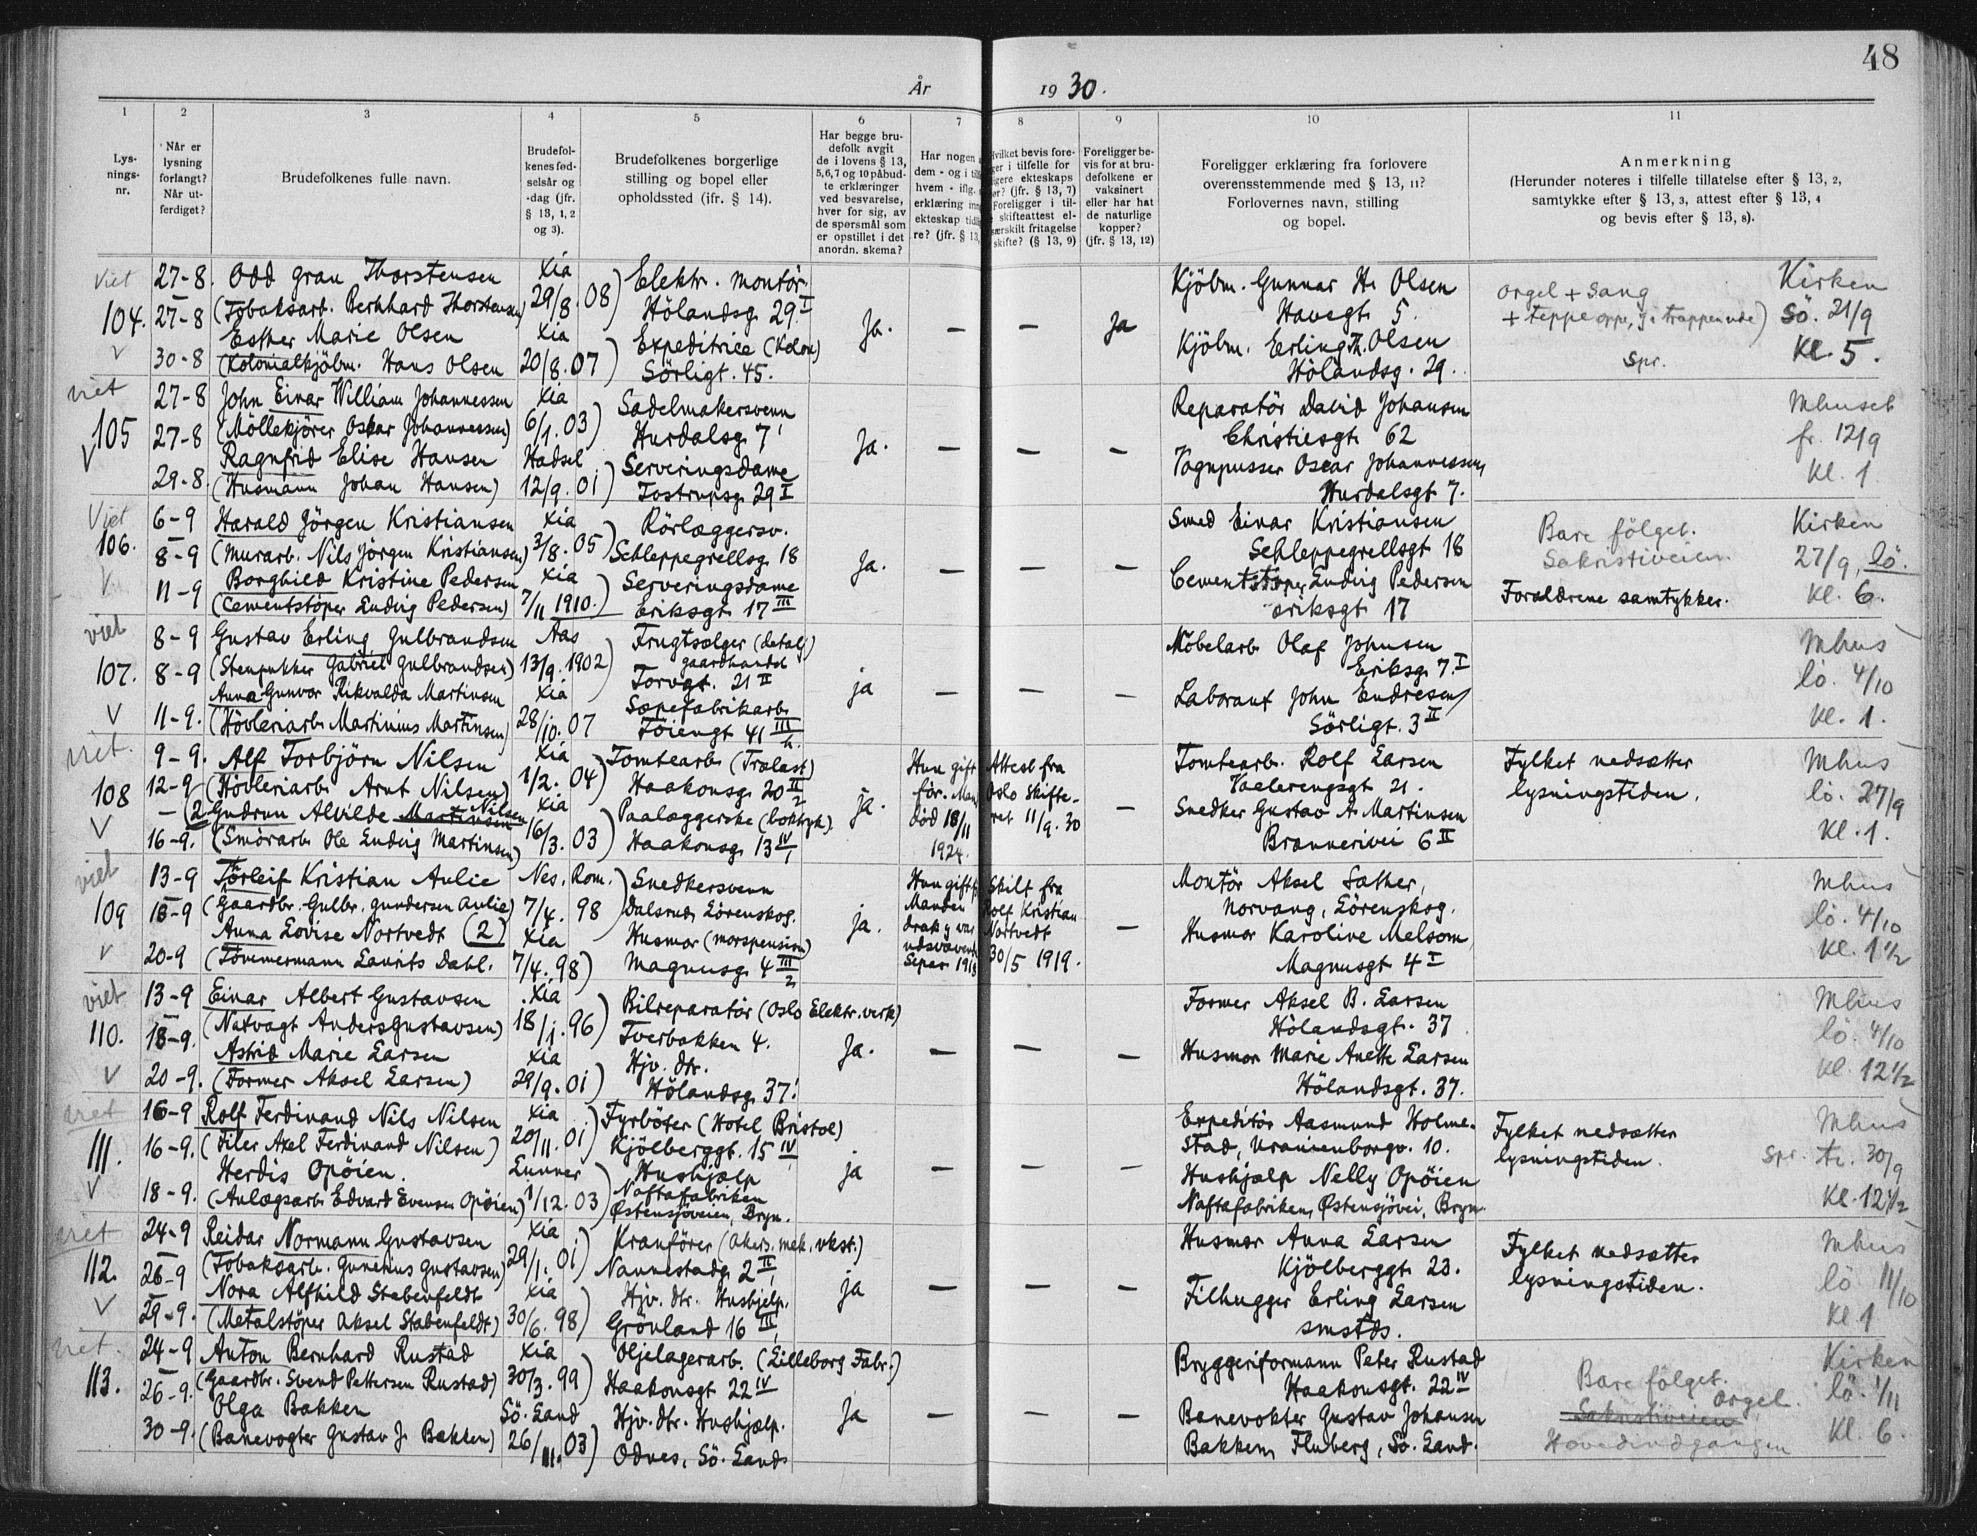 48
År 1930.
1 2 3 4 5 6 7 8 9 10 11
Lys-
nings-
nr.
Når er
lysning
forlangt?
Når ut-
ferdiget?
Brudefolkenes fulle navn.
Brudefol-
kenes fød-
selsår og
-dag (jfr.
§ 13, 1, 2
og 3).
Brudefolkenes borgerlige
stilling og bopel eller
opholdssted (ifr. § 14).
Har begge bru-
defolk avgit
de i lovens § 13,
5, 6, 7 og 10 påbud-
te erklæringer
ved besvarelse,
hver for sig, av
de spørsmål som
er opstillet i det
anordn. skema?
Har nogen
dem - og i
hvem - iflg.
erklæring
ekteskap
re? (jfr. § 13,
Hvilket bevis fore-
ger i tilfelle for
ligere ekteskaps
er? (jfr. § 13, 7)
Foreligger i til-
skifteattest el-
særskilt fritagelse
skifte? (§ 13, 9)
Foreligger be-
vis for at bru-
defolkene er
vaksinert
eller har hat
de naturlige
kopper?
(jfr. § 13, 12)
Foreligger erklæring fra forlovere
overensstemmende med § 13, 11?
Forlovernes navn, stilling
og bopel.
Anmerkning
(Herunder noteres i tilfelle tillatelse efter § 13, 2,
samtykke efter § 13, 3, attest efter § 13, 4
og bevis efter § 13, 8).
Viet
104.
V
27-8.
27-8
30-8
Odd Gran Thorstensen
(Tobaksarb. Bernhard Thorstensen)
Esther Marie Olsen
(Kolonialkjöbm. Hans Olsen
Xia
29/8. 08)
Xia
20/8. 07)
Elektr. montör.
Hölandsg. 29 I
Expeditrice (Kolon)
Sörligt. 45.
Ja.
—
—
Ja
Kjöbm. Gunnar H. Olsen
Havegt. 5.
Kjöbm. Erling Th. Olsen
Hölandsg. 29.
Orgel + Sang
+ teppe opp, i trappen ude)
Spr.
Kirken
Sö. 21/9
Kl. 5.
viet
105
V
27-8
27-8
29-8.
John Einar William Johannessen
(Möllekjörer Oskar Johannessen)
Ragnfrid Elise Hansen
(Husmann Johan Hansen)
Xia
6/1. 03)
Hadsel
12/9. 01)
Sadelmakersvenn
Hurdalsg. 7 I
Serveringsdame
Tostrupsg. 29 I
Ja.
—
—
—
Reparatör David Johansen
Christiesgt. 62
Vognpusser Oscar Johannessen,
Hurdalsgt. 7.
Mhuset
fr. 12/9
Kl. 1
Viet
106.
V
6-9
8-9
11-9
Harald Jörgen Kristiansen
(Murarb. Nils Jörgen Kristiansen)
Borghild Kristine Pedersen
(Cementstöper Ludvig Pedersen)
Xia
3/8. 05)
Xia
7/11 1910.)
Rörlæggersv.
Schleppegrellsg. 18
Serveringsdame
Eriksgt. 17 III
Ja.
—
—
—
Smed Einar Kristiansen
Schleppegrellsgt. 18
Cementstöper Ludvig Pedersen
Eriksgt. 17
Bare fölget.
Sakristiveien
Forældrene samtykker.
Kirken
27/9, lö.
Kl. 6.
viet
107.
V
8-9
8-9
11-9.
Gustav Erling Gulbrandsen
(Stenpukker Gabriel Gulbrandsen)
Anna Gunvor Rikvalda Martinsen
(Hövleriarb. Martinius Martinsen)
Aas
13/9. 1902)
Xia
28/10. 07
Frugtsælger (detalj)
gaardhandel
Torvgt. 21 II
Sæpefabrikarb.
Töiengt. 41 III h.
ja
—
—
—
Möbelarb. Olaf Johnsen
Eriksg. 7. I
Laborant John Endresen,
Sörligt. 3 II
Mhus
lö. 4/10
Kl. 1.
viet.
108
V
9-9.
12-9
—
16-9.
Alf Torbjörn Nilsen
(Hövleriarb. Arnt Nilsen)
(2 Gudrun Alvilde Martinsen Nilsen
(Smörarb. Ole Ludvig Martinsen)
Xia
1/2. 04)
Xia
16/3. 03)
Tomtearb. (Trælast)
Haakonsg. 20 II 2
Paalæggerske (boktryk.)
Haakonsg. 13 IV 1
ja.
Hun gift
før. Man
död 18/11
1924.
Attest fra
Oslo Skifte-
ret 11/9. 30
—
Tomtearb. Rolf Larsen
Vaalerengsgt. 21.
Snedker Gustav A. Martinsen
Brannerivei 6 II
Fylket nedsætter
lysningstiden.
Mhus
lö. 27/9
Kl. 1.
viet
109
V
13-9
18-9
20-9
Torleif Kristian Aulie
(Gaardbr. Gulbr. Gundersen Aulie)
Anna Lovise Nortvedt (2)
(Tömmermann Laurits Dahl.
Nes, Rom.
7/4. 98
Xia
7/4. 98)
Snedkersvenn
Dalsrud, Lörenskog.
Husmor (morspension)
Magnusg. 4 III 2
ja.
Hun gift f
Manden
drak &amp; var
udsvævende
Separ. 1918
Skilt fra
Rolf Kristian
Nortvedt
30/5 1919.
—
Montör Aksel Sather,
Norvang, Lörenskog.
Husmor Karoline Melsom,
Magnusgt. 4 I
Mhus
lö. 4/10
Kl. 1 1/2
viet
110.
V
13-9
18-9.
20-9.
Einar Albert Gustavsen
(Natvagt Anders Gustavsen)
Astrid Marie Larsen
(Former Aksel Larsen)
Xia
18/1. 96)
Xia
29/9. 01)
Bilreparatör (Oslo Elektr. verk)
Tverbakken 4.
Hjv. dtr.
Hölandsg. 37 I
Ja.
—
—
—
Former Aksel B. Larsen
Hölandsgt. 37
Husmor Marie Anette Larsen
Hölandsgt. 37.
Mhus
lö. 4/10
Kl. 12 1/2
viet
111.
V
16-9
16-9.
18-9.
Rolf Ferdinand Nils Nilsen
(Filer Axel Ferdinand Nilsen)
Herdis Opöien.
(Anlægsarb. Edvard Evensen Opöien)
Xia
20/11. 01)
Lunner
1/12. 03)
Fyrböter (Hotel Bristol)
Kjölberggt. 15 IV
Hushjælp
Naftafabriken
Østensjöveien, Bryn.
ja
—
—
—
Expeditör Aasmund Holme-
stad, Uranienborgv. 10.
Hushjælp Nelly Opöien
Naftafabriken, Østensjövei, Bryn
Fylket nedsætter
lysningstiden.
Mhus
Spr. ti. 30/9
Kl. 12 1/2
viet
112.
V
24-9
26-9
29-9.
Reidar Normann Gustavsen
(Tobaksarb. Gunerius Gustavsen)
Nora Alfhild Stabenfeldt
(Metalstöper Aksel Stabenfeldt)
Xia
29/1. 01)
Xia
30/6. 98)
Kranförer (Akers. mek. vkst.)
Nannestadg. 2 II
Hjv. dtr. Hushjelp.
Grönland 16 III
ja
—
—
—
Husmor Anna Larsen
Kjölberggt. 23.
Filhugger Erling Larsen
smstds.
Fylket nedsætter
lysningstiden.
Mhus
lö 11/10
Kl. 1
viet.
113.
24-9
26-9.
30-9.
Anton Bernhard Rustad
(Gaardbr. Svend Pettersen Rustad)
Olga Bakken
(Banevogter Gustav J. Bakken)
Xia
30/3. 99)
Sö. Land
26/11. 03)
Oljelagerarb. (Lilleborg Fabr.)
Haakonsgt. 22 IV
Hjv. dtr. Hushjælp.
Odnes, Sö. Land
Ja
—
—
—
Bryggeriformann Peter Rustad
Haakonsgt. 22 IV
Banevokter Gustav Johansen
Bakken, Fluberg, Sö. Land.
Bare fölget.
Orgel.
Sakristiveien
Hovedindgangen
Kirken
lö. 1/11
Kl. 6.